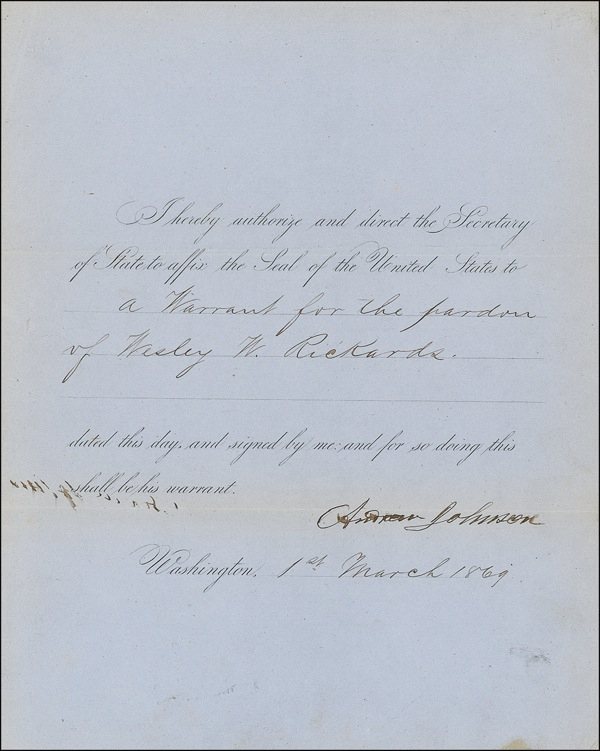 I hereby authorize and direct the Secretary
of State to affix the Seal of the United States to
a Warrant for the pardon
of Wesley W. Rickards.
dated this day, and signed by me: and for so doing this
shall be his warrant.
Andrew Johnson
Washington, 1st March 1869